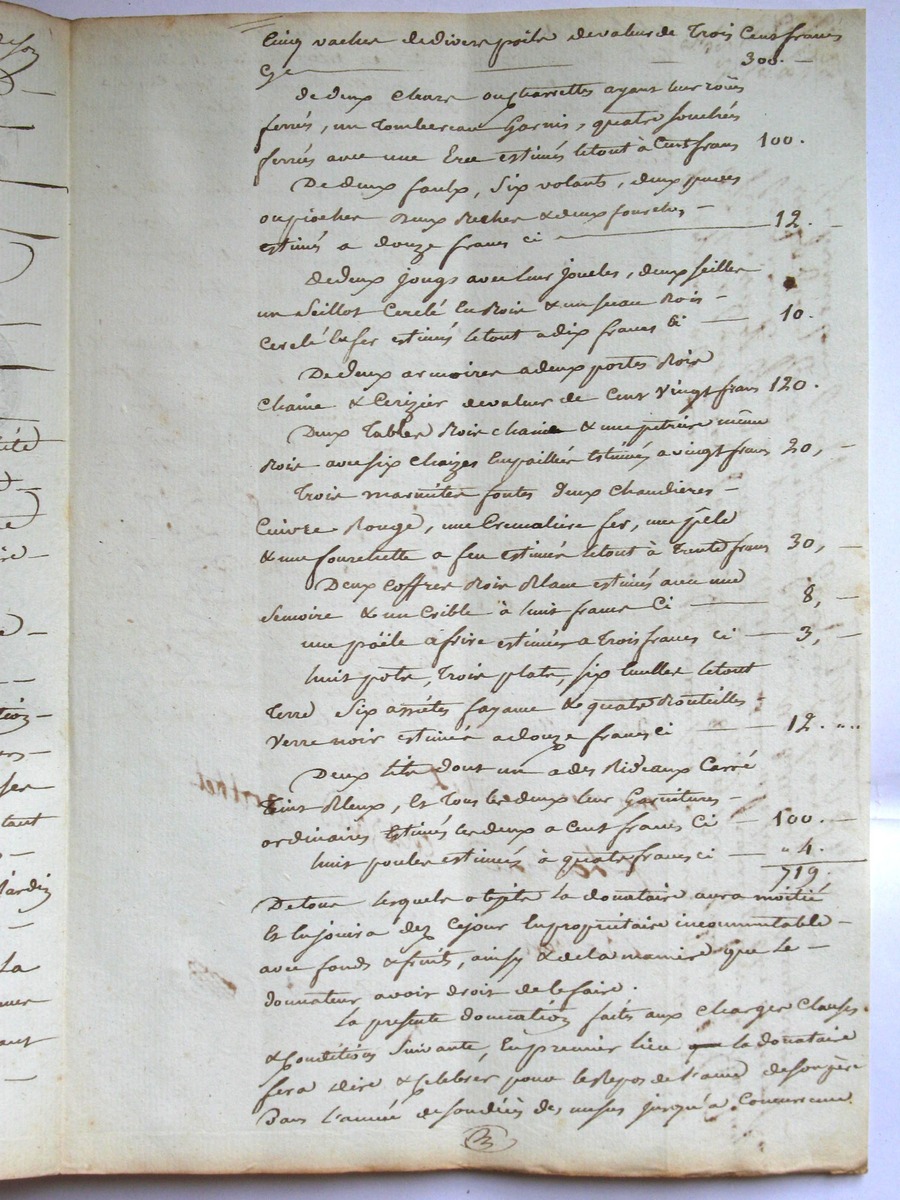 Cinq vaches de divers poils de valeur de Trois Cent francs
Cy 300. —
de deux chars ou charrettes ayant leur roües
ferrés, un Tombereau Garnis, quatre
ferrés avec une Erce estimés letout à Cent frans 100.
De deux faulx, Six volants, deux
ou pioches deux Beches & deux fourches —
estimés a douze francs ci — 12.
de deux jougs avec leur joucles, deux seilles
un Seillot Cerclé En Bois & un seau Bois —
Cerclé En fer estimés le tout a dix francs Ci — 10.
De deux armoires a deux portes Bois
Chaine & Cerizier de valeur de Cent Vingt frans 120.
Deux Tables Bois chaine & une petrière même
Bois avec six chaizes Empaillés Estimés a vingt frans 20, —
Trois marmites fontes deux Chaudieres —
Cuivre Rouge, une Cremaliere fer, une pêle
& une fourchette a feu estimés letout à Trente frans 30, —
Deux coffres Bois Blanc estimés avec une
Semoire & un Crible à huit francs Ci — 8, —
une poële a frire estimées a Trois francs ci — 3, —
huit pots, Trois plats, six letout
Terre Six assiétes fayance & quatre Bouteilles —
Verre noir estimés a douze francs ci — 12.
Deux lits dont un a des Rideaux Carré
Teint Bleux, Et Tous les deux leur Garnitures —
ordinaires Estimés les deux a Cent francs Ci — 100. —
huit poules estimés à quatre francs ci — " 4.
719.
De tous lesquels objets la donataire aura moitié
Et En jouira dez Cejour En propriétaire incommutable —
avec fonds & fruits, ainsy & de la maniere que Le —
donnateur avoit droit de le faire.
La presente donnation faite aux Charges Clauses
& Conditions Suivante, En premier lieu la donataire
fera dire & celebrer pour le Repos de l'ame de son père
Dans l'année de son décès des messes jusqu'a Concurrence